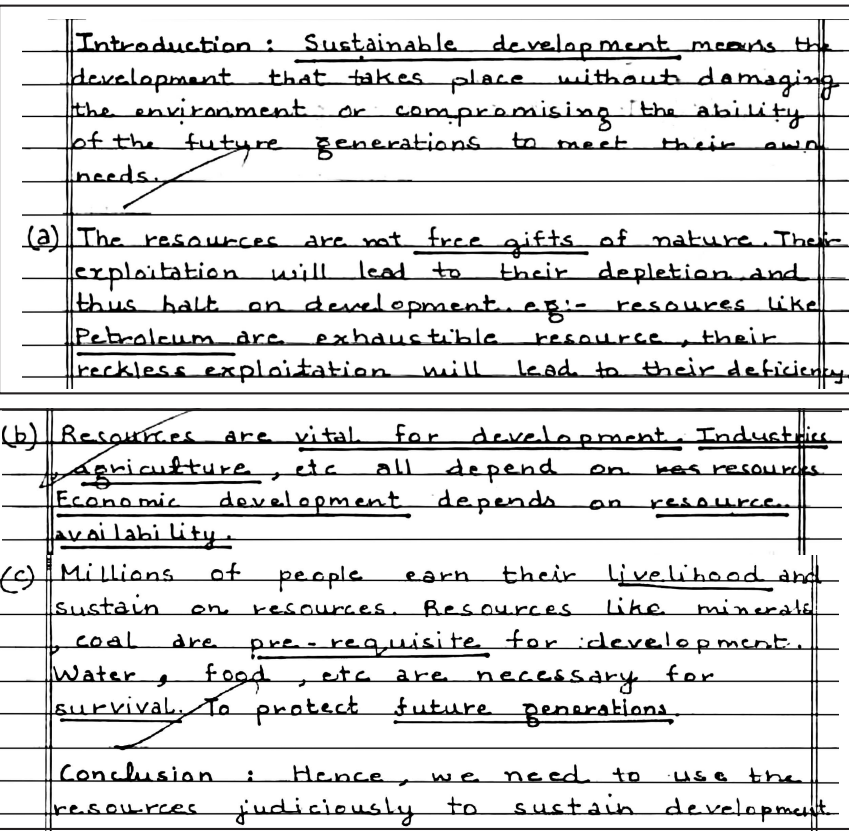 Introduction : Sustainable development means the
development that takes place without damaging
the environment or compromising the ability
of the future generations to meet their own
needs.
(a) The resources are not free gifts of nature. Their
exploitation will lead to their depletion and
thus halt on development. eg:- resoures like
Petroleum are exhaustible resource, their
reckless exploitation will lead to their deficiency
(b) Resources are vital for development. Industries
, agriculture, etc all depend on resources
Economic development depends on resource
availability.
(c) Millions of people earn their livelihood and
sustain on resources. Resources like minerals
, coal are pre-requisite for development.
Water, food, etc are necessary for
survival. To protect future generations.
Conclusion : Hence, we need to use the
resources judiciously to sustain development